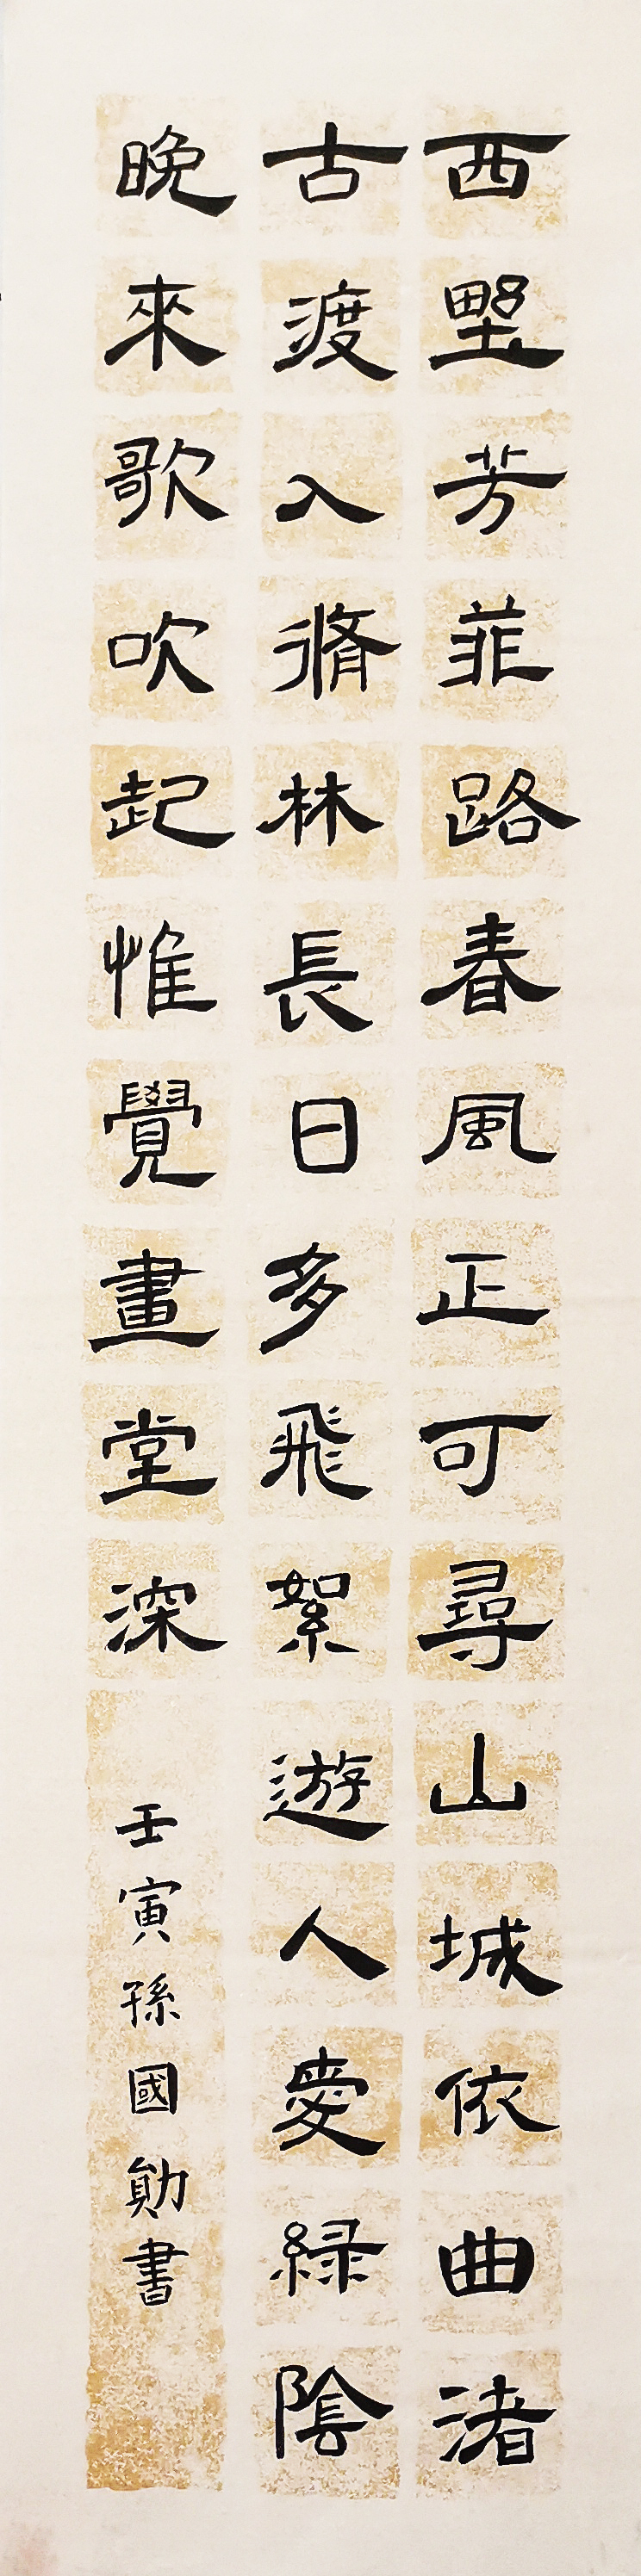 西墅芳菲路春風正可尋山城依曲渚
古渡入脩林長日多飛絮遊人愛緑陰
晚來歌吹起惟覺畫堂深
壬寅孫國勛書